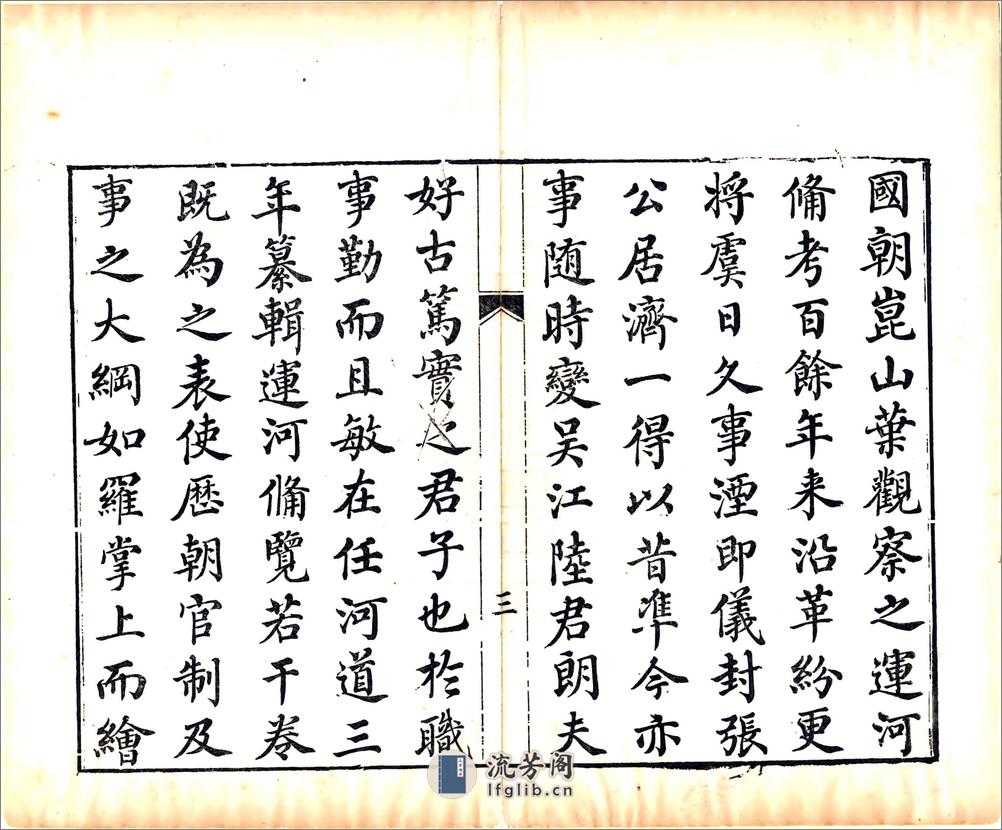 國朝崑山葉觀察之運河
俻考百餘年来沿革紛更
将虞日久事湮即儀封張
公居濟一得以昔凖今亦
事随時變吴江陸君朗夫
三
好古篤實之君子也於職
事勤而且敏在任河道三
年纂輯運河俻覽若干卷
既為之表使歴朝官制及
事之大綱如羅掌上而繪
流芳阁
lfglib.cn